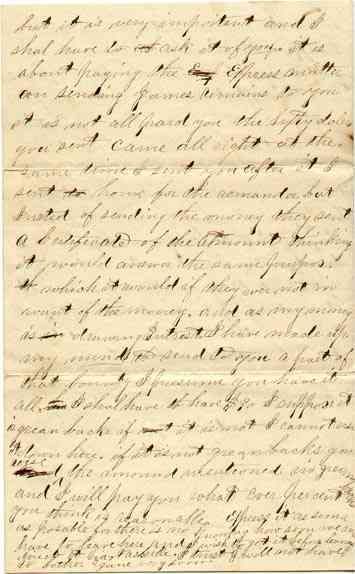 but it is very important and I
shal have to ask it of you it is
about paying the Express on
on sending James remains to you
it is not all paid you the fifty dolers
you sent came all right at the
same time I sent you after it I
sent to home for the but
Insted of sending the money they sent
a Certificate of the Amount thinking
it would answer the same purpose
which it would if they were not in
want of the money. and as my money
is drawing Intrest I have made up
my mind to send to you a part of
that bounty I presume you have it
all I shal have to have I suppose it
green backs if it is not I cannot use
it down here. if it is not green backs you
send the amount mentioned in green
and I will pay you what ever percent
you think is reasonable Express it as soon
as posable for there is no how soon we
have to leave here and I wish to get it before
I trust I will not have
to bother you